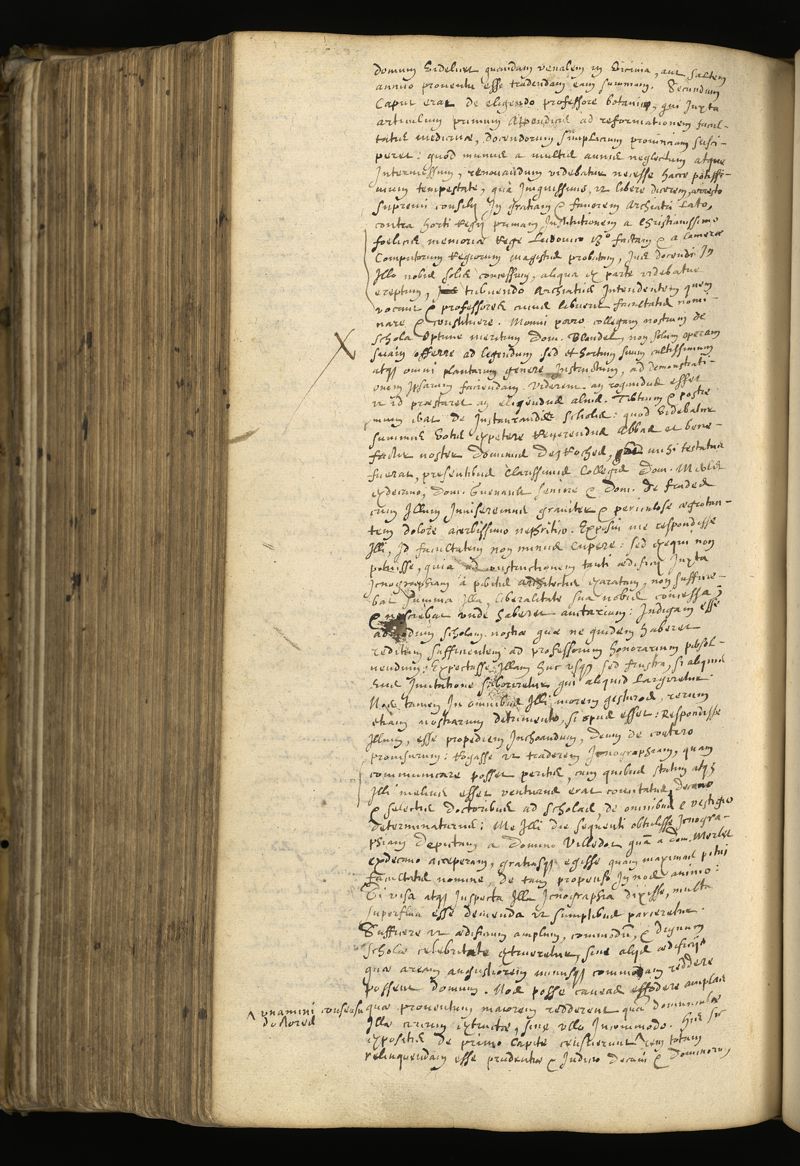 domum videlicet quamdam venalem in vicinia, aut saltem
annuo proventu esse tradendam eam summam. Secundum
Caput erat de eligendo professore botanico, qui juxta
articulum primum Appendicis ad reformationem facul-
tatis medicinae, docendorum simplicium provinciam susci-
peret: quod munus a multis annis neglectum atque
Intermissum, renovandum videbatur necesse hacce potissi-
mum tempestate, qua iniquissimo, ut libere dicerem, arresto
supremi consilij In gratiam & favorem Archiatri lato,
contra horti Regij primam Institutionem a Christianissimo
foelicis memoriae Rege Ludovico 13º factam & a Camerae
Computorum Regiorum magistris probatam, Jus docendi In
Illo nobis solis concessum, aliqua ex parte videbatur
ereptum, tribuendo Archiatris Intendentem quem
vocant & professores cuius libuerit facultatis nomi-
nare & constituere. Monui porro collegam nostrum de
schola optime meritum Dom. Blondel non solum operam
suam offerre ad legendum sed et hortum suum cultissimum
atque omni plantarum genere Instructum, ad demonstrati-
onem Ipsarum faciendam. viderent an rogandus esset
ut id praestaret an eligendus alius. Tertium & postre
mum erat de Instaurandis scholis: quod videbatur
summis votis expetere Reverendus Abbas et bene-
factor noster Dominus Des Roches, mihi testatus
fuerat, presentibus Clarissimis Collegis Dom. Merlet
exdecano, Dom. Guenault seniore & Dom. de
cum Illum Inviseremus graviter & periculose aegrotan-
tem dolore acerbissimo nephritico. Exposui me respondisse
Illi, Id facultatem non minus cupere: sed exequi non
potuisse, quia ad constructionem tanti aedificij Juxta
Icnographiam a peritis architectis exaratam, non suffice-
bat summa illa liberalitate sua nobis concessa;
& nesciebat unde haberet auctarium: Indigam esse
admodum scholam nostram quae ne quidem haberet
reditum sufficientem ad professorum honorarium persol-
vendum: Expectasse Illam huc usque sed frustra, si aliquis
eius Imitatione qui aliquid largiretur.
Nos tamen In omnibus Illi morem gesturos, rerum
etiam nostrarum detrimento, si opus esset: Respondisse
Illum, esse propediem Inchoandum, deum de coetero
provisurum: Rogasse ut traderem Icnographiam, quam
communicare posset peritis, cum quibus statim atque
Illi melius esset venturus erat comitatus decano
& selectis doctoribus ad scholas, de omnibus e vestigio
determinaturus: Me Illi die sequenti obtulisse Icnogra-
phiam depictam a domino Villedot quam a Dom. Merlet
exdecano acceperam, gratiasque egisse quam maximas
facultatis nomine de tam propenso In nos animo:
Et visa atque Inspecta Illa Icnographia dixisse, multa
superflua esse demenda ut sumptibus parceretur.
Sufficere ut aedificium amplum, commodum, & dignum
scholae celebritate extrueretur, sine alijs aedificijs
quae aream angustiorem minusque commodam reddere
possent domum. Nos posse caveas effodere amplas
quae proventum maiorem redderent quam domunculae
Illae circum extructae, sine ullo Incommodo. His sic
expositis de primo capite censuerunt ^ rem totam
relinquendam esse prudentiae & Judicio decani & dominorum
^ unanimi consensu
doctores